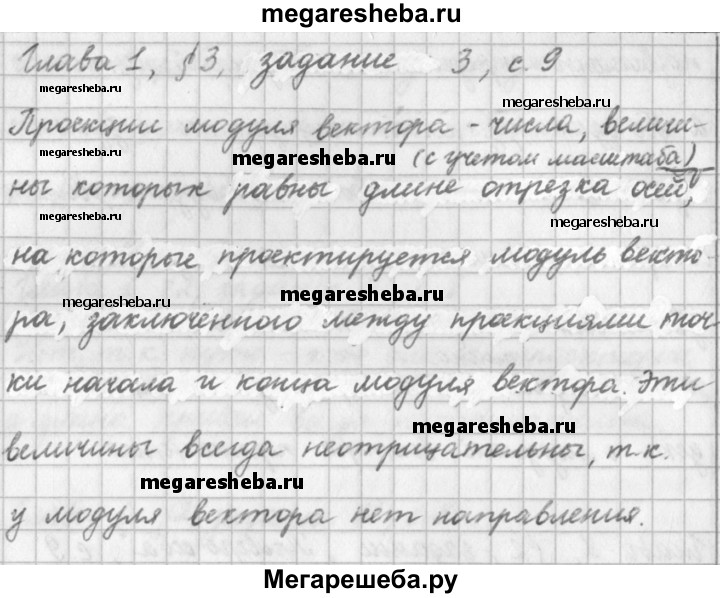 megaresheba.ru
Глава 1, §3, задание 3, с. 9
megaresheba.ru
megaresheba.ru
Проекции модуля вектора - числа, величи-
megaresheba.ru
megaresheba.ru
(с учетом масштаба)
ны которых равны длине отрезка осей,
megaresheba.ru
megaresheba.ru
на которые проектируется модуль векто-
megaresheba.ru
megaresheba.ru
ра, заключённого между проекциями точ-
ки начала и конца модуля вектора. Эти
megaresheba.ru
величины всегда неотрицательны, т.к.
megaresheba.ru
у модуля вектора нет направления.
Мегарешеба.ру